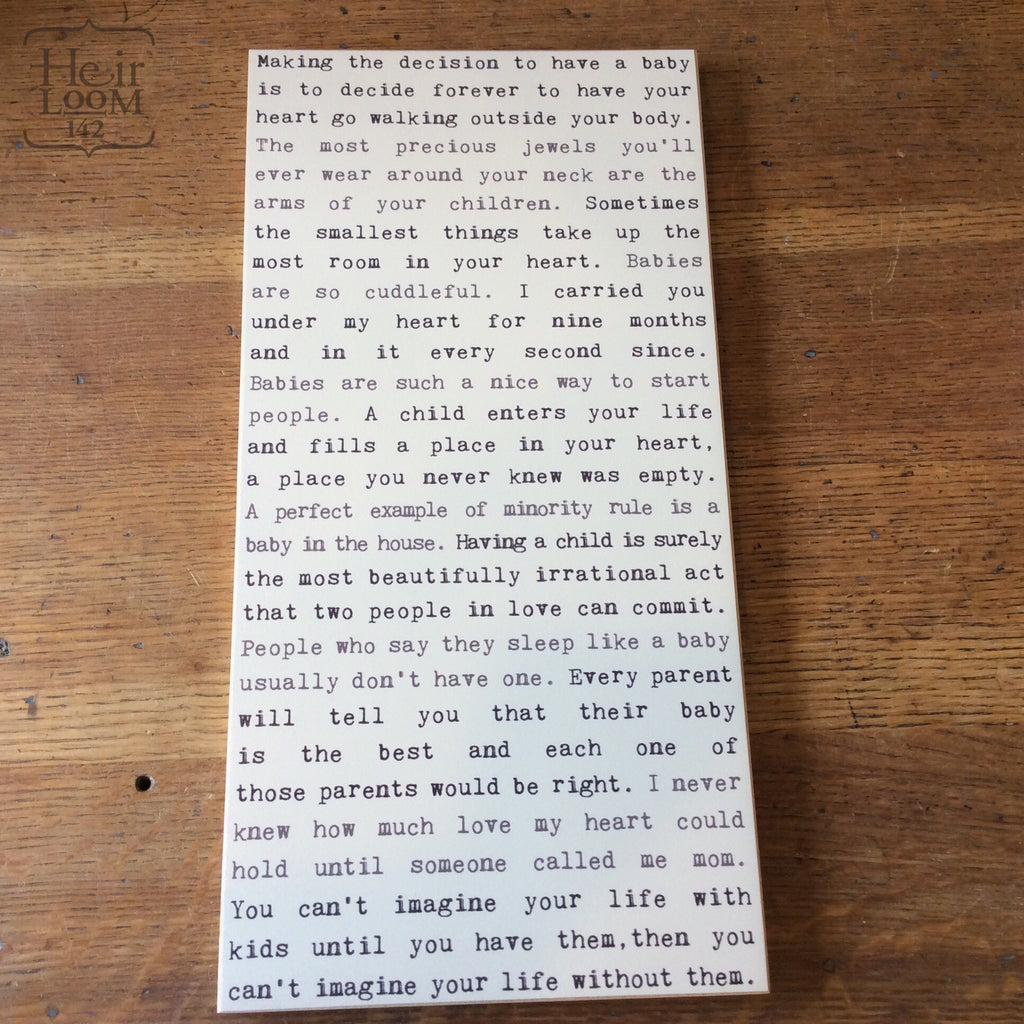 Heir
LOOM
142
Making the decision to have a baby
is to decide forever to have your
heart go walking outside your body.
The most precious jewels you'll
ever wear around your neck are the
arms of your children. Sometimes
the smallest things take up the
most room in your heart. Babies
are so cuddleful. I carried you
under my heart for nine months
and in it every second since.
Babies are such a nice way to start
people. A child enters your life
and fills a place in your heart,
a place you never knew was empty.
A perfect example of minority rule is a
baby in the house. Having a child is surely
the most beautifully irrational act
that two people in love can commit.
People who say they sleep like a baby
usually don't have one. Every parent
will tell you that their baby
is the best and each one of
those parents would be right. I never
knew how much love my heart could
hold until someone called me mom.
You can't imagine your life with
kids until you have them,then you
can't imagine your life without them.